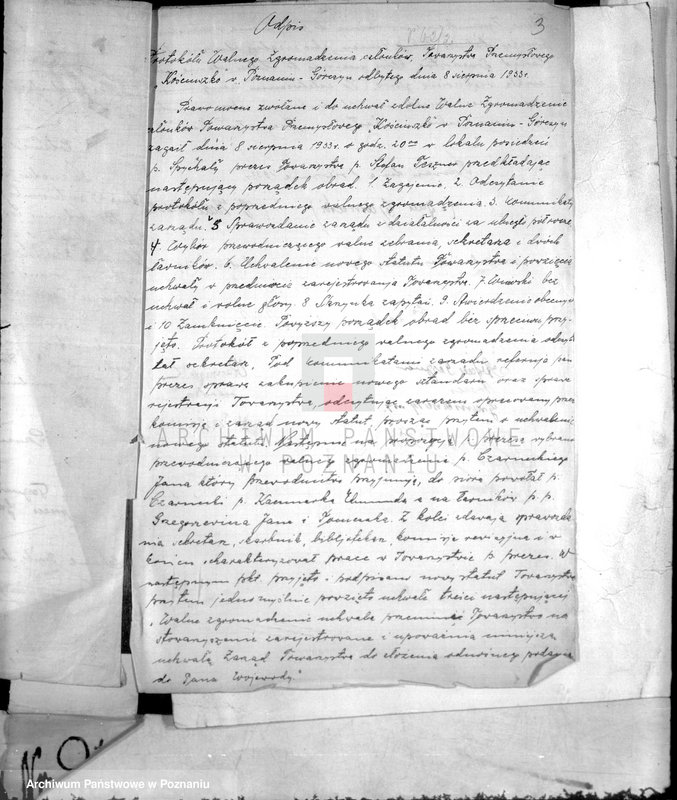 Odpis
3
Protokół Walnego Zgromadzenia członków Towarzystwa Przemysłowego
"Kościuszko w Poznaniu - Górczyn odbytego dnia 8 sierpnia 1933 r.
Prawomocne zwołane i do uchwał zdolne Walne Zgromadzenie
członków Towarzystwa Przemysłowego Kościuszko w Poznaniu - Górczyn
zagaił dnia 8 sierpnia 1933 r. o godz. 20 w lokalu posiedzeń
p. Spychały prezes Towarzystwa p. Stefan przedkładając
następujący porządek obrad. 1 Zagajenie, 2. Odczytanie
protokółu z poprzedniego walnego zgromadzenia 3. komunikaty
zarządu. 5 Sprawozdanie zarządu z działalności za ubiegłe półrocze
4. Wybór przewodniczącego walne zebrania, sekretarza i dwóch
ławników. 6. Uchwalenie nowego statutu Towarzystwa i powzięcia
uchwały w przedmiocie zarejestrowania Towarzystwa. 7. Wnioski bez
uchwał i wolne głosy. 8 Skrzynka zapytań. 9. Stwierdzenie obecnych
i 10 Zamknięcie. Powyższy porządek obrad bez sprzeciwu przy-
jęto. Protokół z poprzedniego walnego zgromadzenia odczy-
tał sekretarz. Pod komunikatami zarządu referuje pan
prezes sprawę zakupienia nowego sztandaru oraz sprawę
rejestracji Towarzystwa, odczytując zarazem opracowany przez
komisję i zarząd nowy statut prosząc przytem o uchwalenie
nowego statutu. Następnie na propozycję p. prezesa wybrano
przewodniczącego walnego zgromadzenia p. Czarneckiego
Jana który przewodnictwo przyjmuje, do pióra powołał p.
Czarnecki p. Kaczmarka Edmunda a na ławników p. p.
Jana i Tomczaka. Z kolei zdawają sprawozda-
nia sekretarz, skarbnik, bibljotekarz, komisja rewizyjna i w
końcu scharakteryzował pracę w Towarzystwie p. prezes. W
następnym pkt. przyjęto i podpisano nowy statut Towarzystwa
przytem jednomyślnie powzięto uchwałę treści następującej
"Walne zgromadzenie uchwala przemienić Towarzystwo na
stowarzyszenie zarejestrowane i upoważnia niniejszą
uchwałą Zarząd Towarzystwa do złożenia odnośnego podania
do Pana Wojewody"
ARCHIWUM PAŃSTWOWE
W POZNANIU
Archiwum Państwowe w Poznaniu